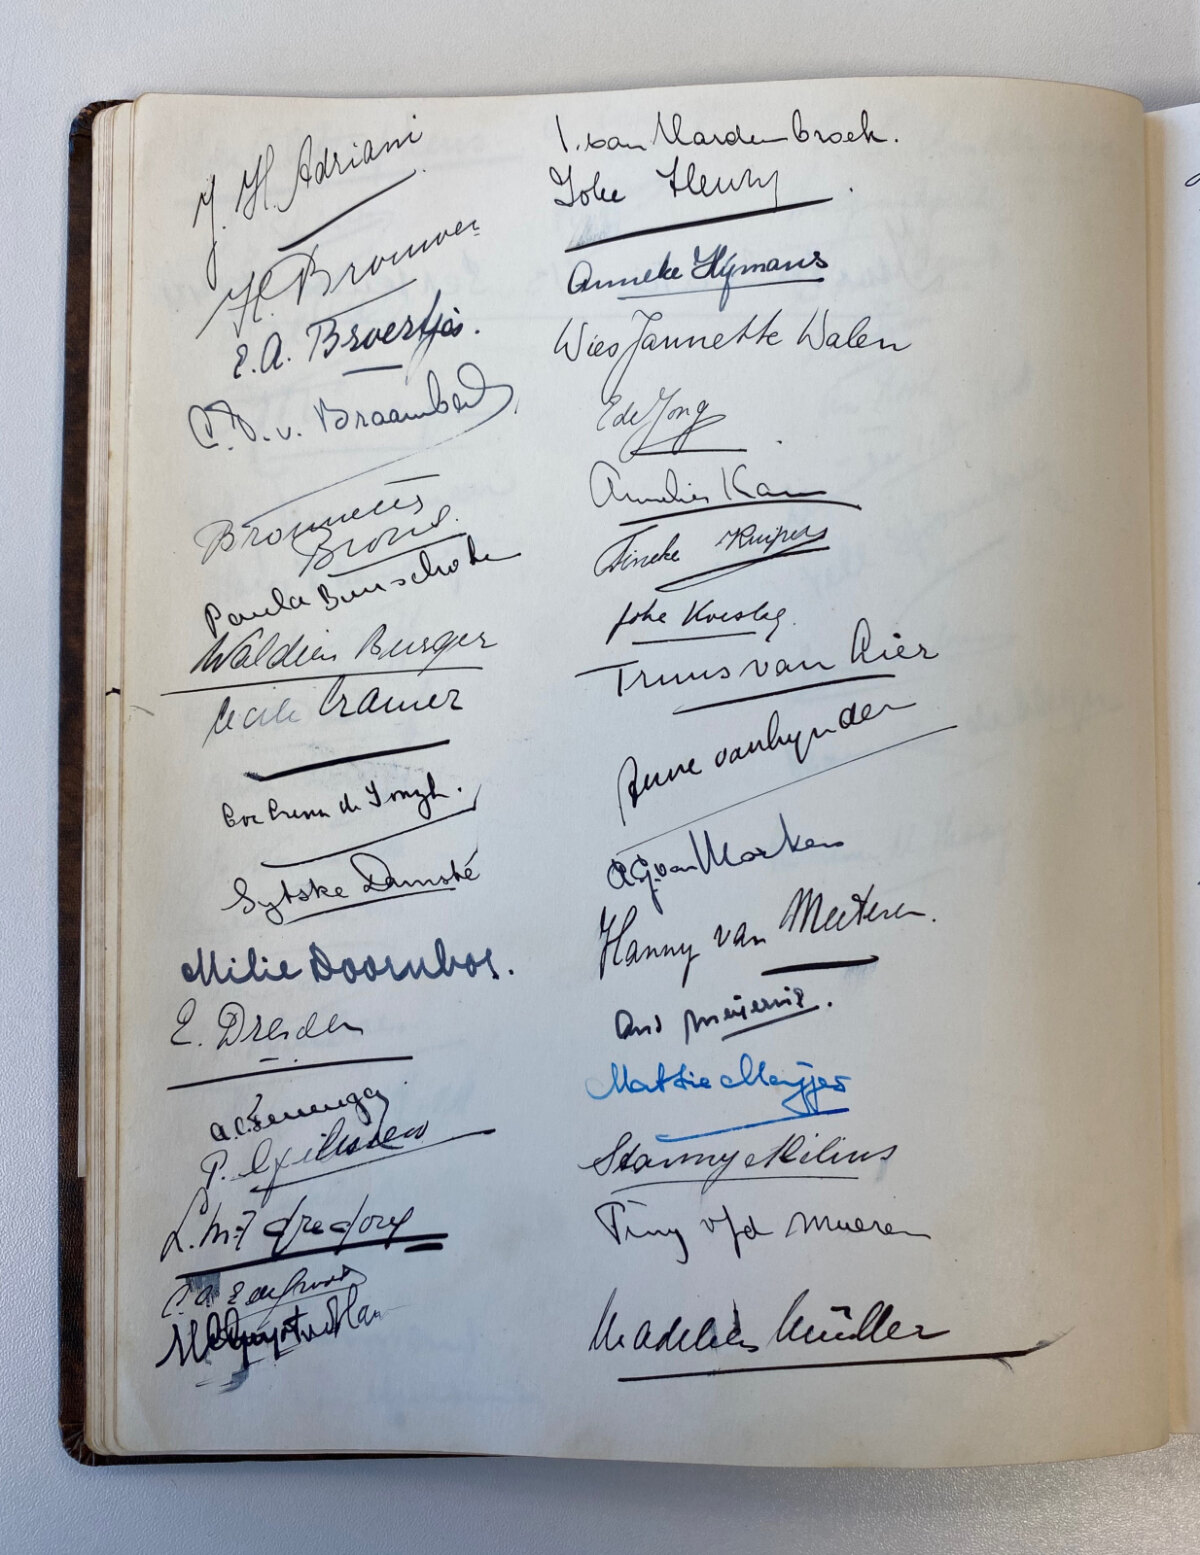 J. H. Adriani
H. Brouwer
E. A. Broertjes.
v. Braambeek
Brouwers
Paula Bunschoten
Waldien Burger
Cecile Cramer
de Jongh.
Sytske Damsté
Milie Doornbos.
E. Dresden
P.
L. M. F. Gregory
C. A. E. de Groot
I. van Hardenbroek.
Joke Henny
Anneke Hymans
Wies Jannette Walen
E de Jong
Annelies Kan
Tineke Kuipers
Joke Koesleg.
Truus van Lier
Anne van Lynden
A. G. van Marken
Hanny van Meeteren.
Ans Meijerink.
Mattie Meijjes
Stanny Milius
Tiny v/d Mueren
Madelies Müller